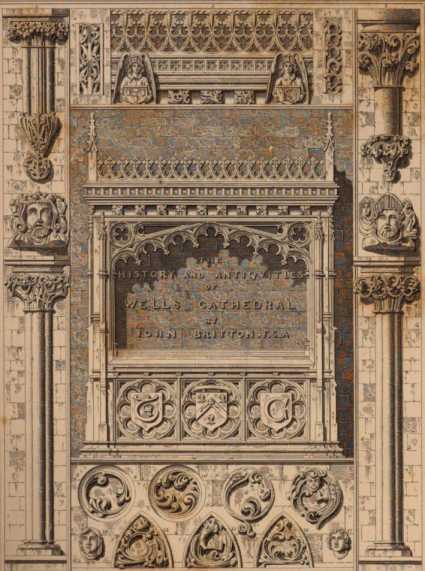 THE
HISTORY AND ANTIQUITIES
OF
WELLS CATHEDRAL
BY
JOHN BRITTON, F.S.A